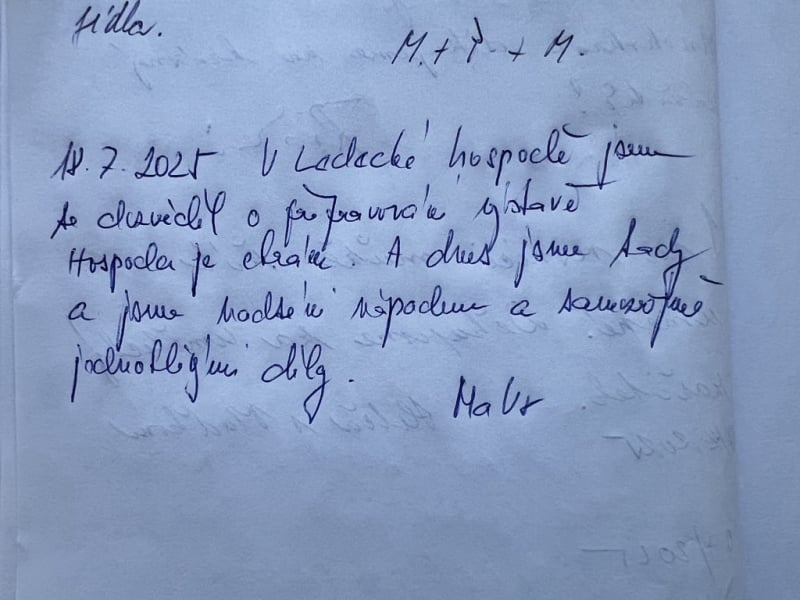 jídla.
M. + P. + M.
18. 7. 2025 V Ladecké hospodě jsme
se dozvěděl o připravování výstavě
Hospoda je chrám. A dnes jsme tady
a jsme nadšeni nápadem a samozřejmě
jednotlivými díly.